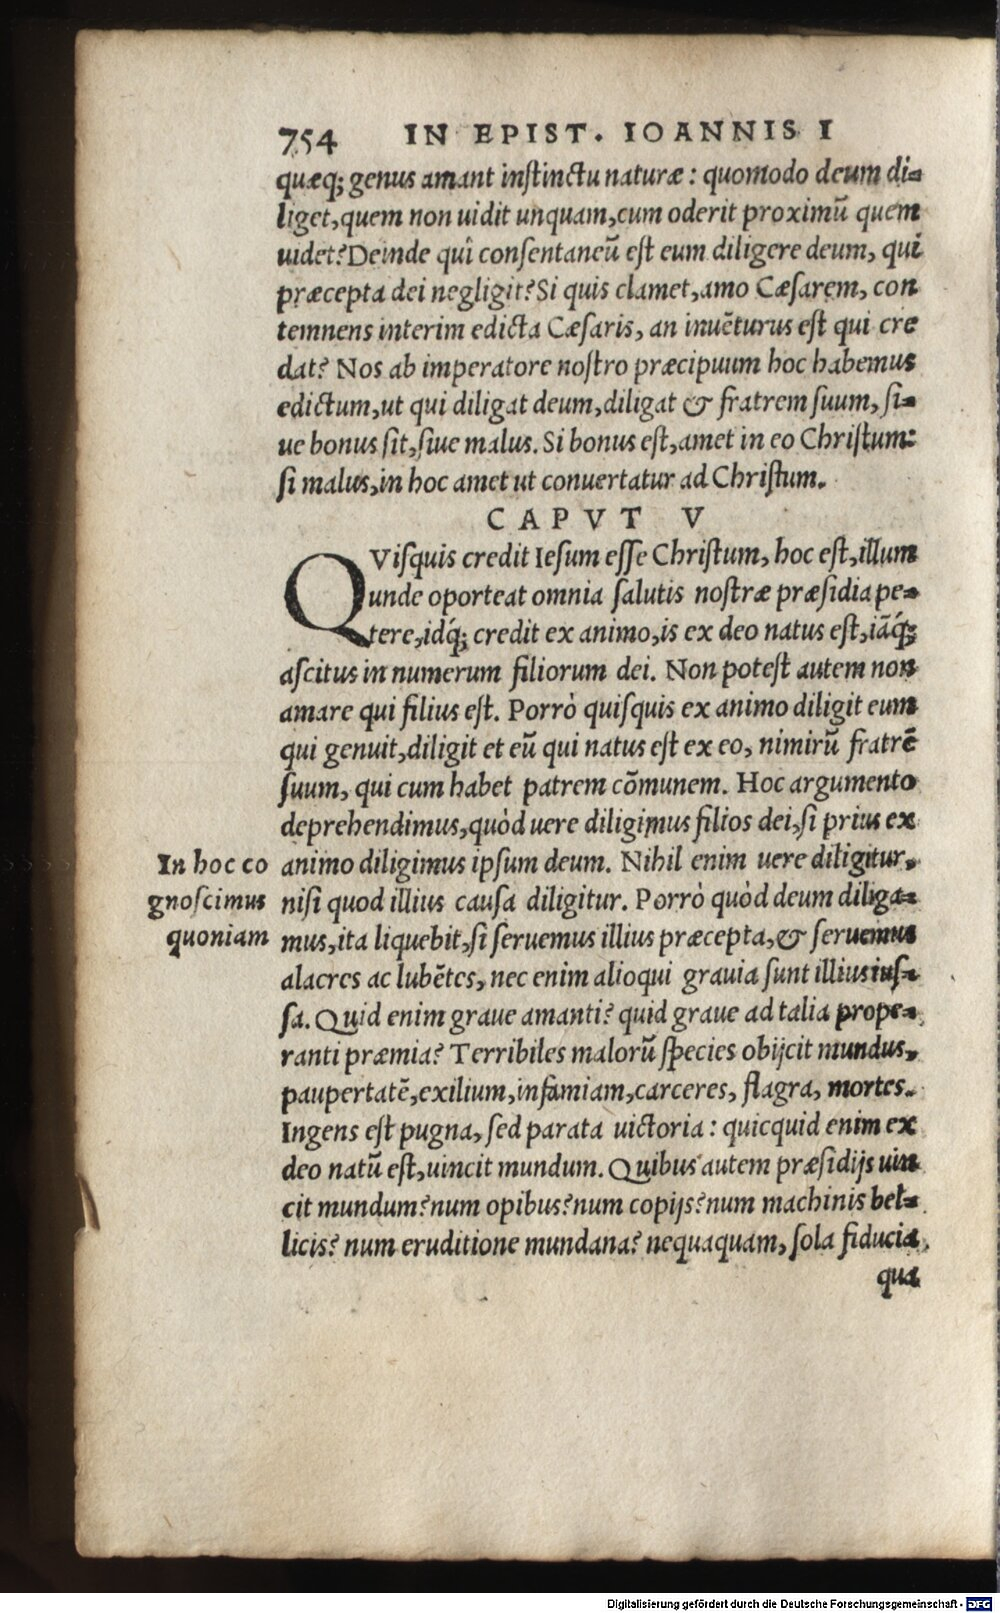 754 IN EPIST. IOANNIS I
quæq; genus amant inſtinctu naturæ: quomodo deum di=
liget, quem non uidit unquam, cum oderit proximū quem
uidet? Deinde quî conſentaneū eſt eum diligere deum, qui
præcepta dei negligit? Si quis clamet, amo Cæſarem, con
temnens interim edicta Cæſaris, an inuēturus eſt qui cre
dat? Nos ab imperatore noſtro præcipuum hoc habemus
edictum, ut qui diligat deum, diligat & fratrem ſuum, ſi=
ue bonus ſit, ſiue malus. Si bonus eſt, amet in eo Chriſtum:
ſi malus, in hoc amet ut conuertatur ad Chriſtum.
CAPVT V
QViſquis credit Ieſum eſſe Chriſtum, hoc eſt, illum
unde oporteat omnia ſalutis noſtræ præſidia pe=
tere, idq́; credit ex animo, is ex deo natus eſt, iāq́;
aſcitus in numerum filiorum dei. Non poteſt autem non
amare qui filius eſt. Porrò quiſquis ex animo diligit eum
qui genuit, diligit et eū qui natus eſt ex eo, nimirū fratrē
ſuum, qui cum habet patrem cōmunem. Hoc argumento
deprehendimus, quòd uere diligimus filios dei, ſi prius ex
In hoc co
gnoſcimus
quoniam
animo diligimus ipſum deum. Nihil enim uere diligitur,
niſi quod illius cauſa diligitur. Porrò quòd deum diliga=
mus, ita liquebit, ſi ſeruemus illius præcepta, & ſeruemus
alacres ac lubētes, nec enim alioqui grauia ſunt illius iuſ=
ſa. Quid enim graue amanti? quid graue ad talia prope=
ranti præmia? Terribiles malorū ſpecies obijcit mundus,
paupertatē, exilium, infamiam, carceres, flagra, mortes.
Ingens eſt pugna, ſed parata uictoria: quicquid enim ex
deo natū eſt, uincit mundum. Quibus autem præſidijs uin
cit mundum? num opibus? num copijs? num machinis bel=
licis? num eruditione mundana? nequaquam, ſola fiducia,
qua
Digitalisierung gefördert durch die Deutsche Forschungsgemeinschaft - DFG